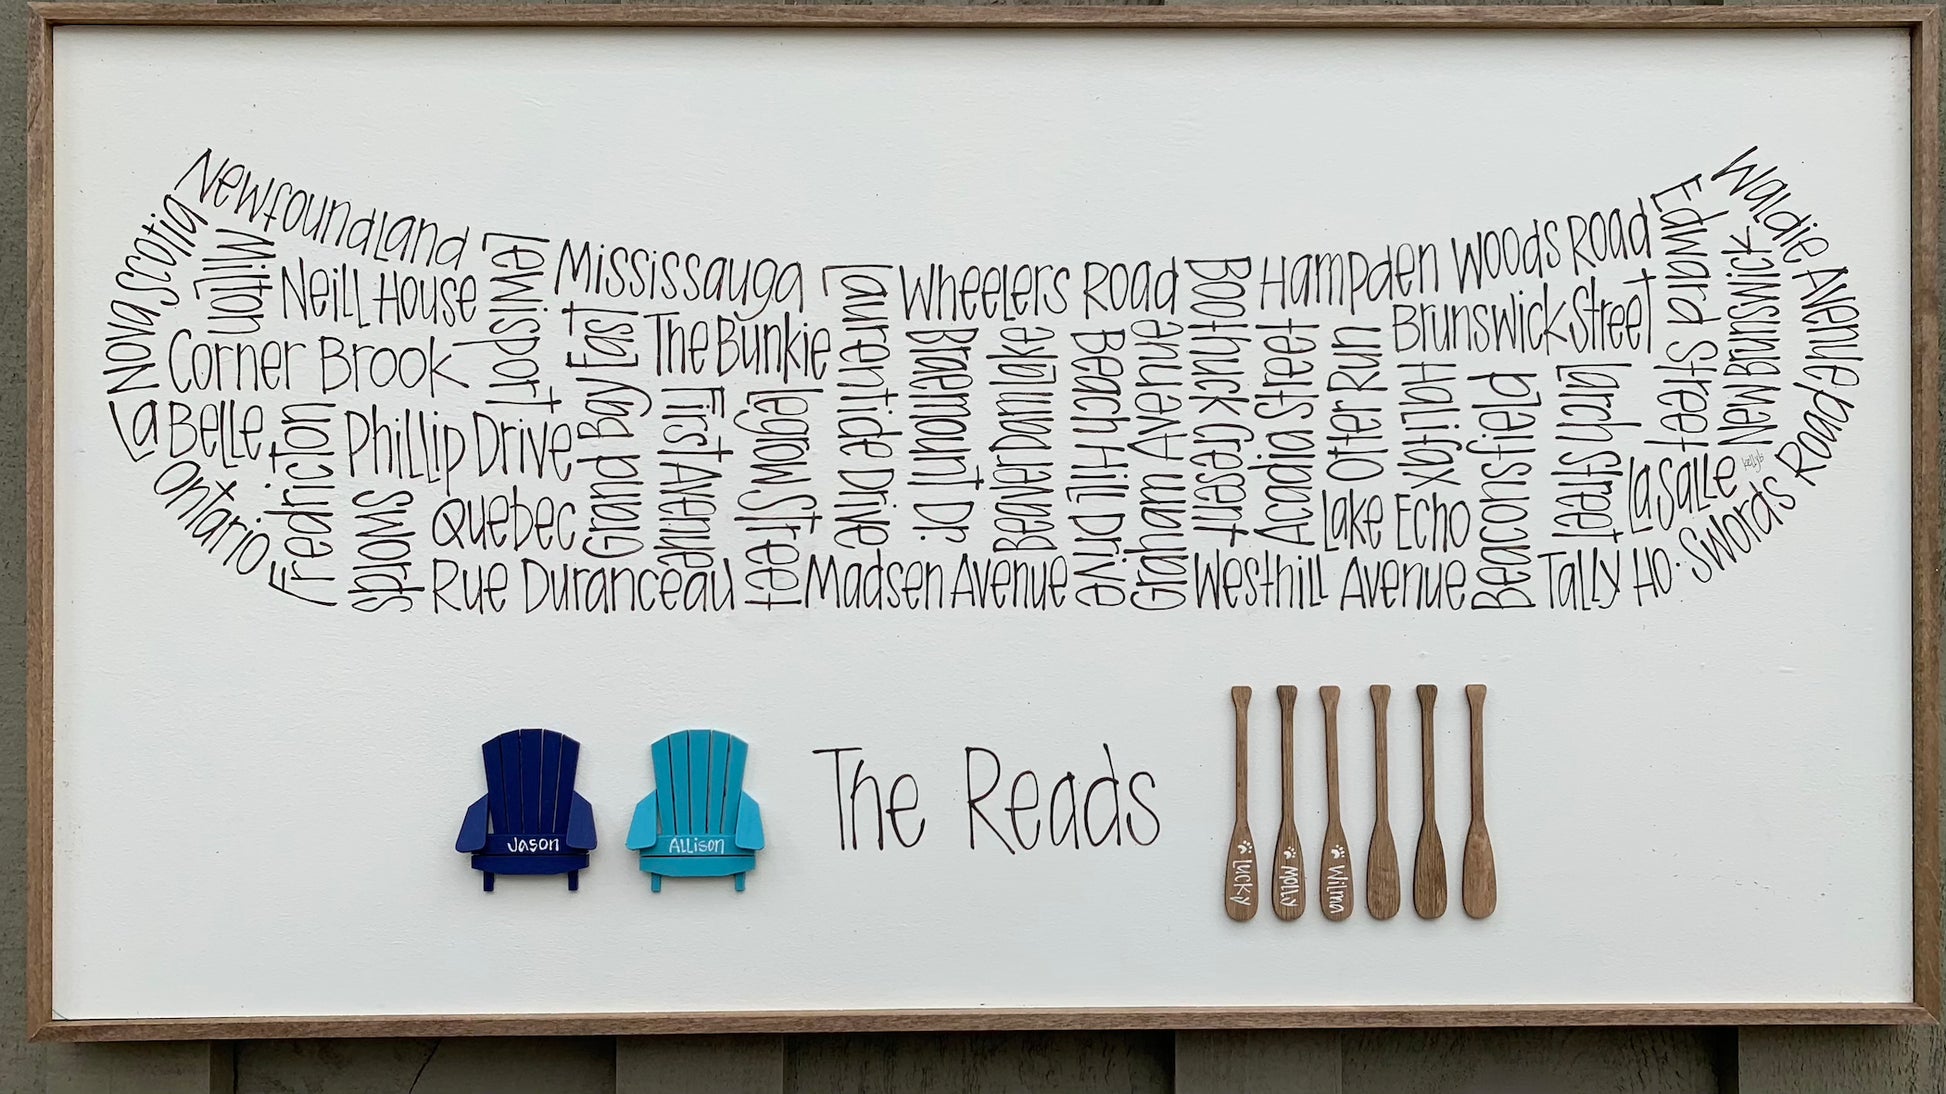 Newfoundland
Nova Scotia
Milton
Neill House
Lewisport
Mississauga
Laurentide Drive
Wheelers Road
Boothuck Cresent
Hampden Woods Road
Edward Street
Waldie Avenue
New Brunswick
Corner Brook
Grand Bay East
The Bunkie
Braemount Dr.
Beaver Dam Lake
Beach Hill Drive
Graham Avenue
Acadia Street
Otter Run
Brunswick Street
Halifax
Beaconsfield
Larch Street
La Belle
Fredricton
Phillip Drive
First Avenue
Legrow Street
Ontario
Swords
Quebec
Lake Echo
LaSalle
kellyb
Rue Duranceau
Madsen Avenue
Westhill Avenue
Tally Ho · Swords Road
Jason
Allison
The Reads
Lucky
Molly
Wilma